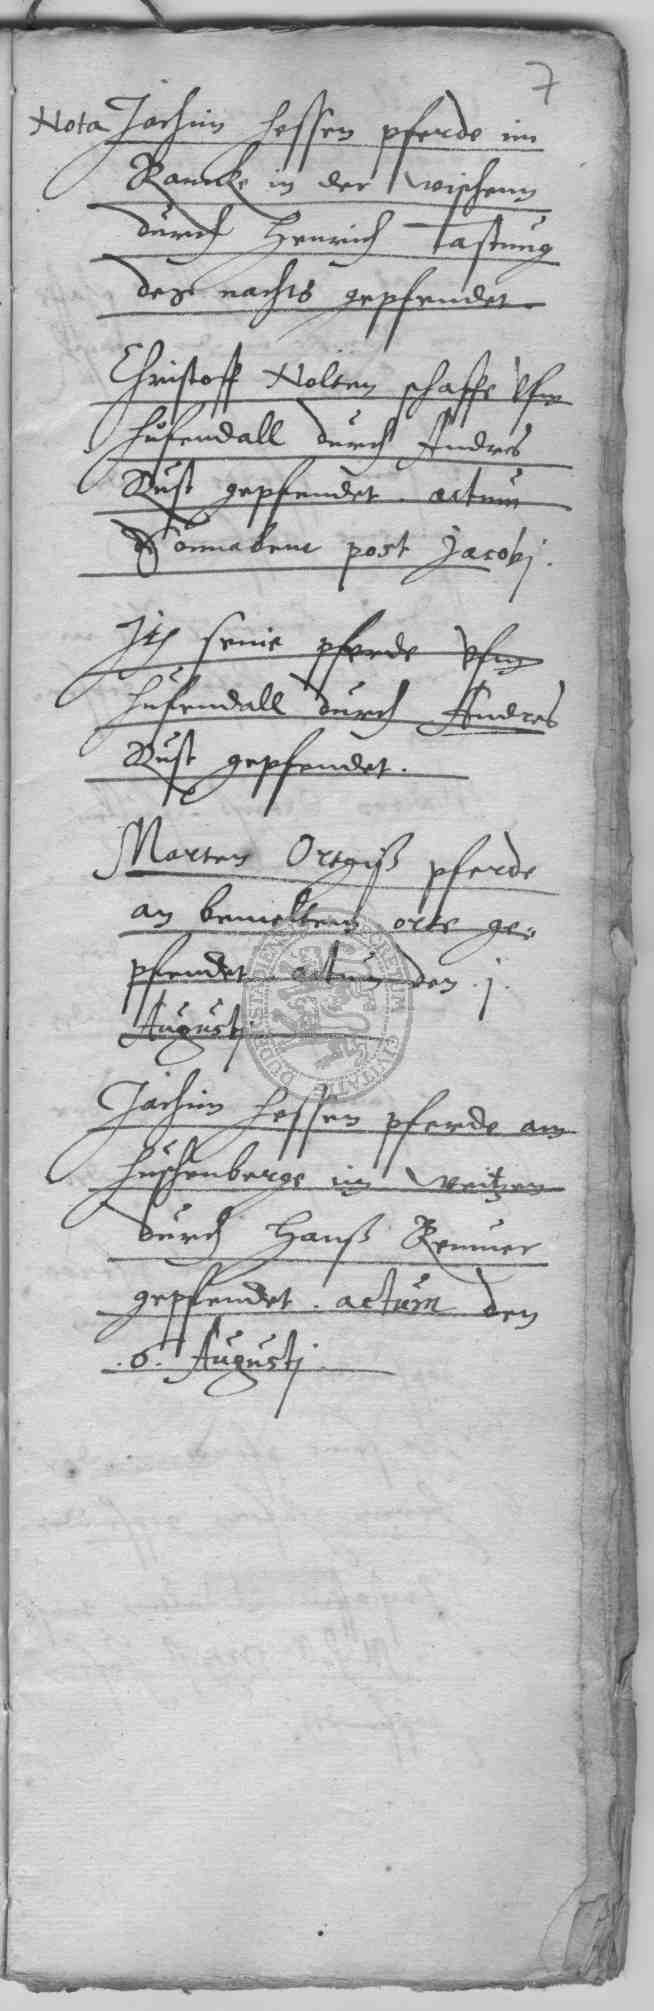 7
Nota Jochim Hessen pferde im
Ramcke in der wischenn
durch Henrich Tastung
des nachts gepfendet
Christoff Nolten schaffe vfm
Hufendall durch Andres
Rust gepfendet. actum
Sonnabent post Jacobj.
Jt seine pferde vfm
Hufendall durch Andres
Rust gepfendet.
Marten Ortgiß pferde
an bemeltem orte ge=
pfendet actum den .j.
Augustj
Jochim Hessen pferde am
im weitzen
durch Hanß Remmer
gepfendet. actum den
.6. Augustj.
SECRETUM CIVITATIS